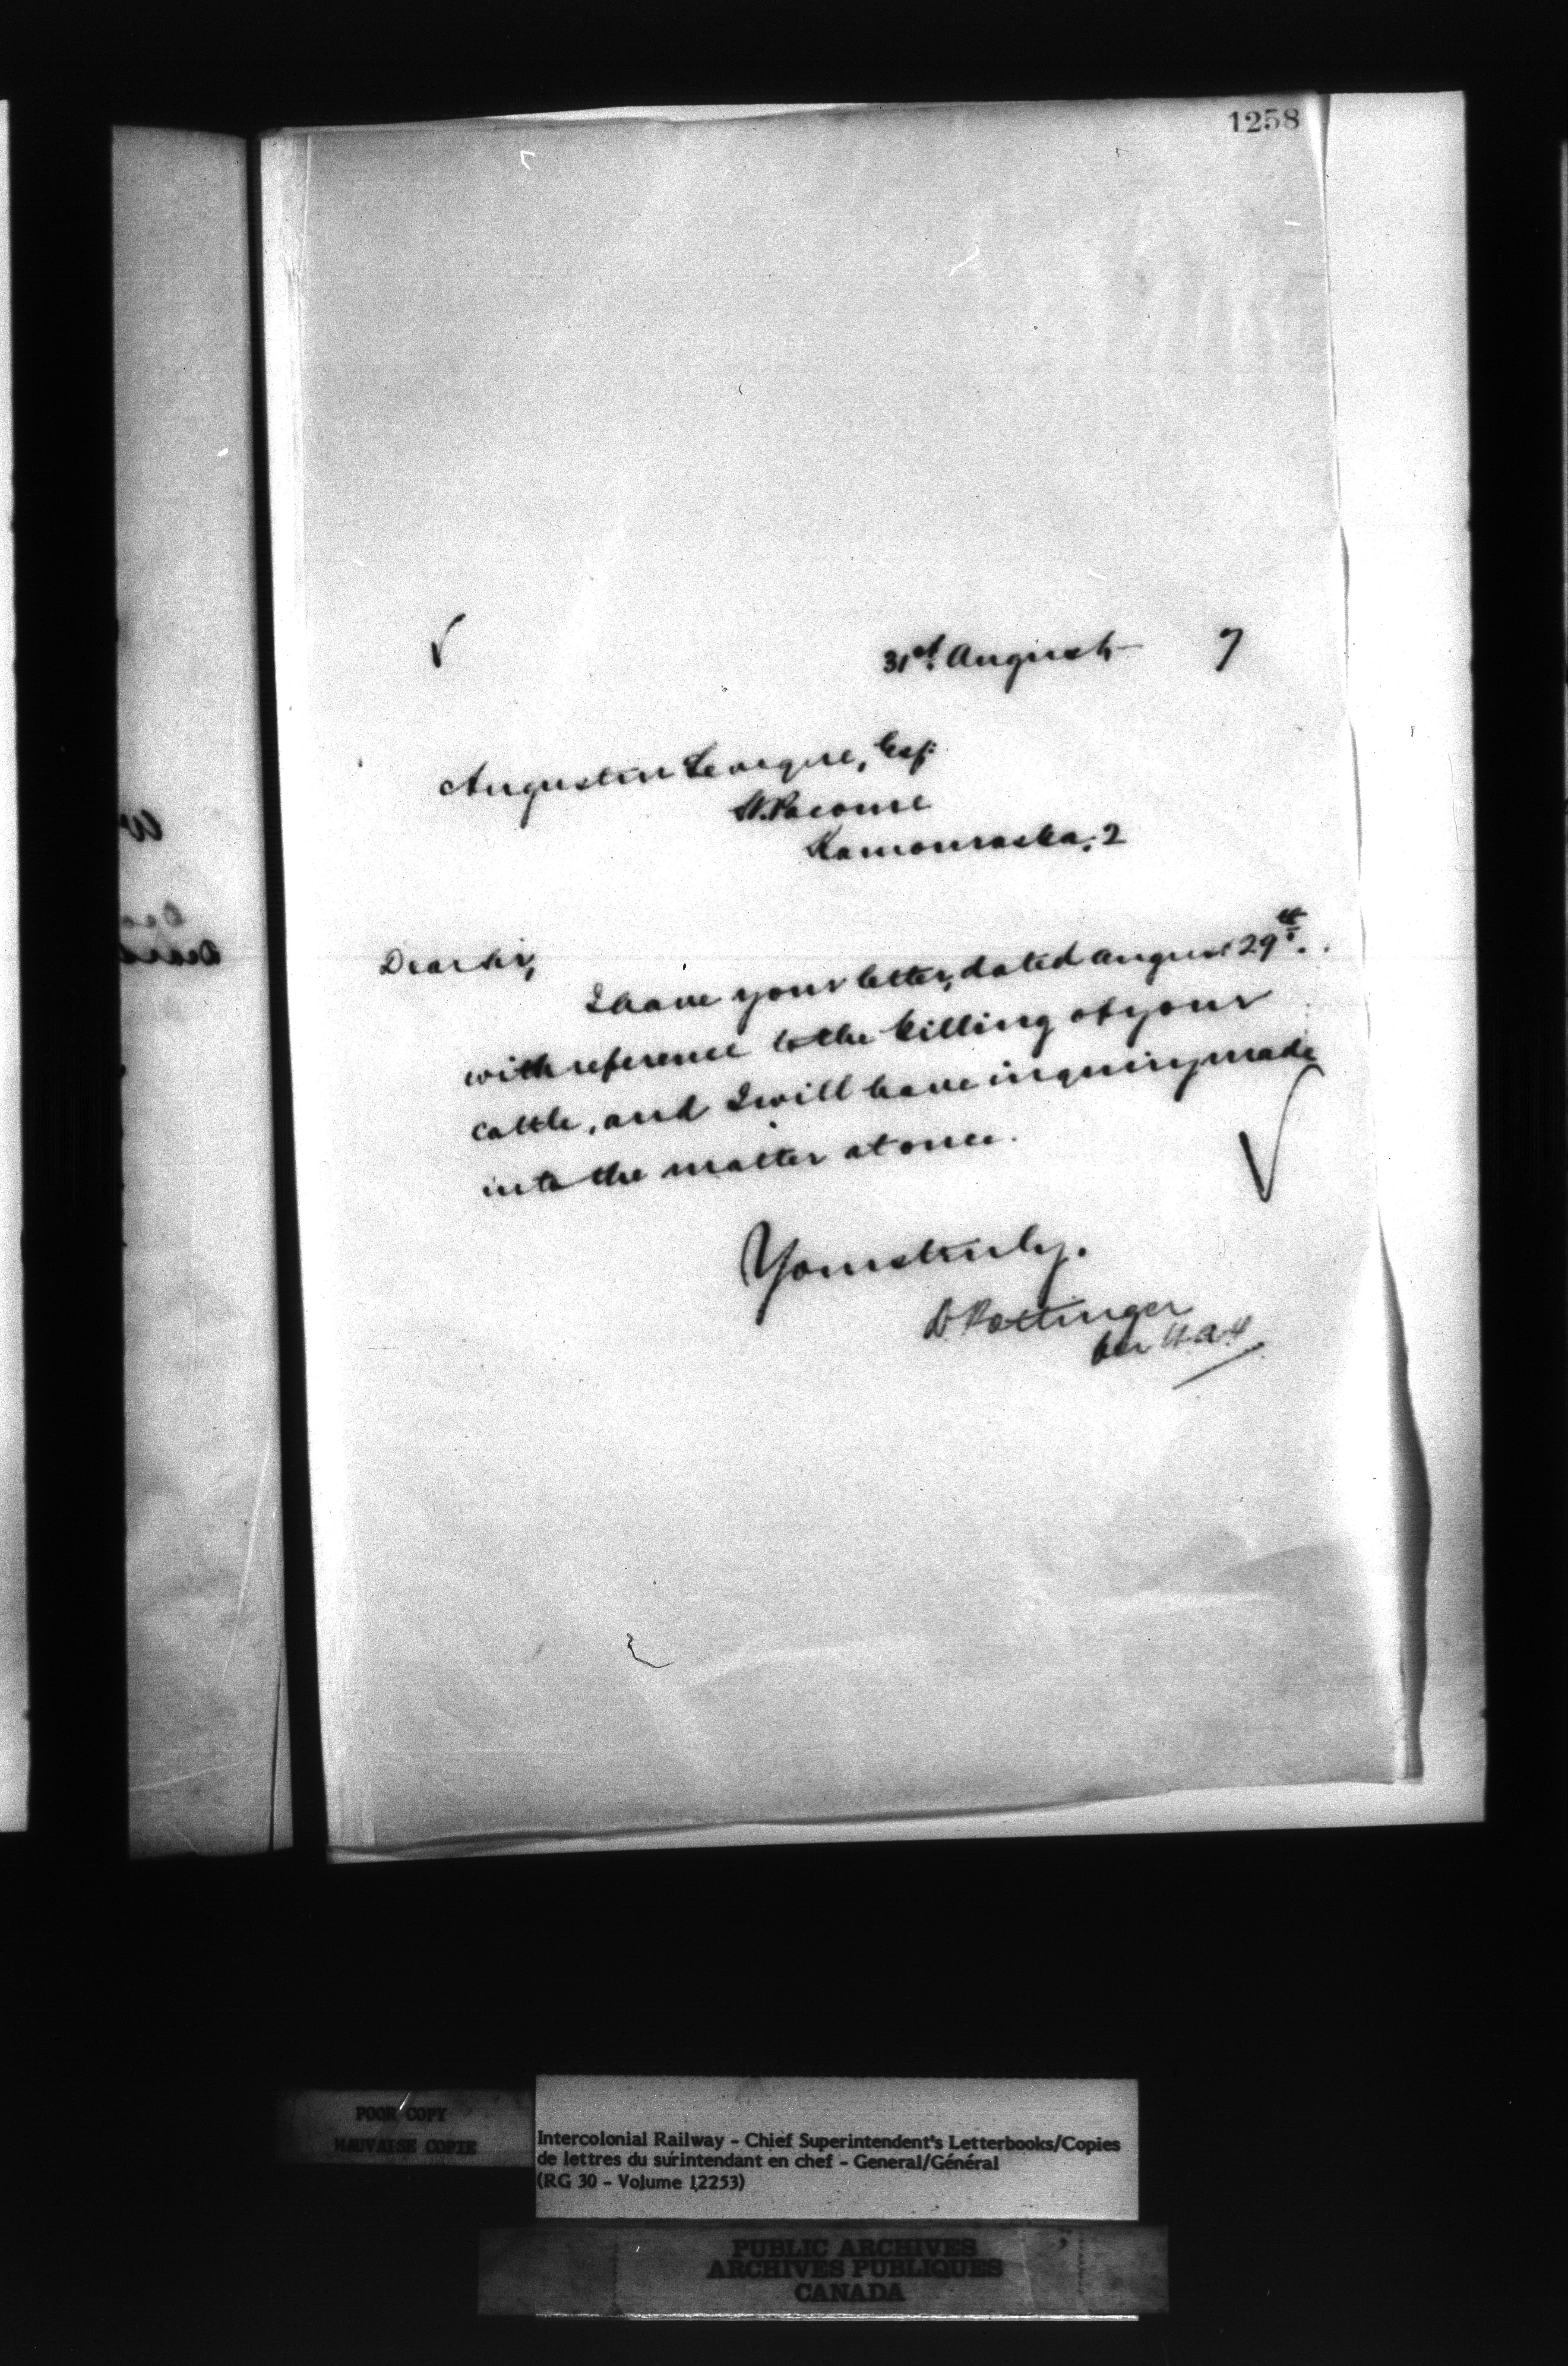 1258
31st August 7
Augustin Levesque, Esq:
St. Pacome
Kamouraska, 2
Dear Sir,
I have your letter, dated August 29th.
with reference to the killing of your
cattle, and I will have inquiry made
into the matter at once.
Yours truly.
D Pottinger
per
POOR COPY
MAUVAISE COPIE
Intercolonial Railway - Chief Superintendent's Letterbooks/Copies
de lettres du surintendant en chef - General/Général
(RG 30 - Volume 12253)
PUBLIC ARCHIVES
ARCHIVES PUBLIQUES
CANADA